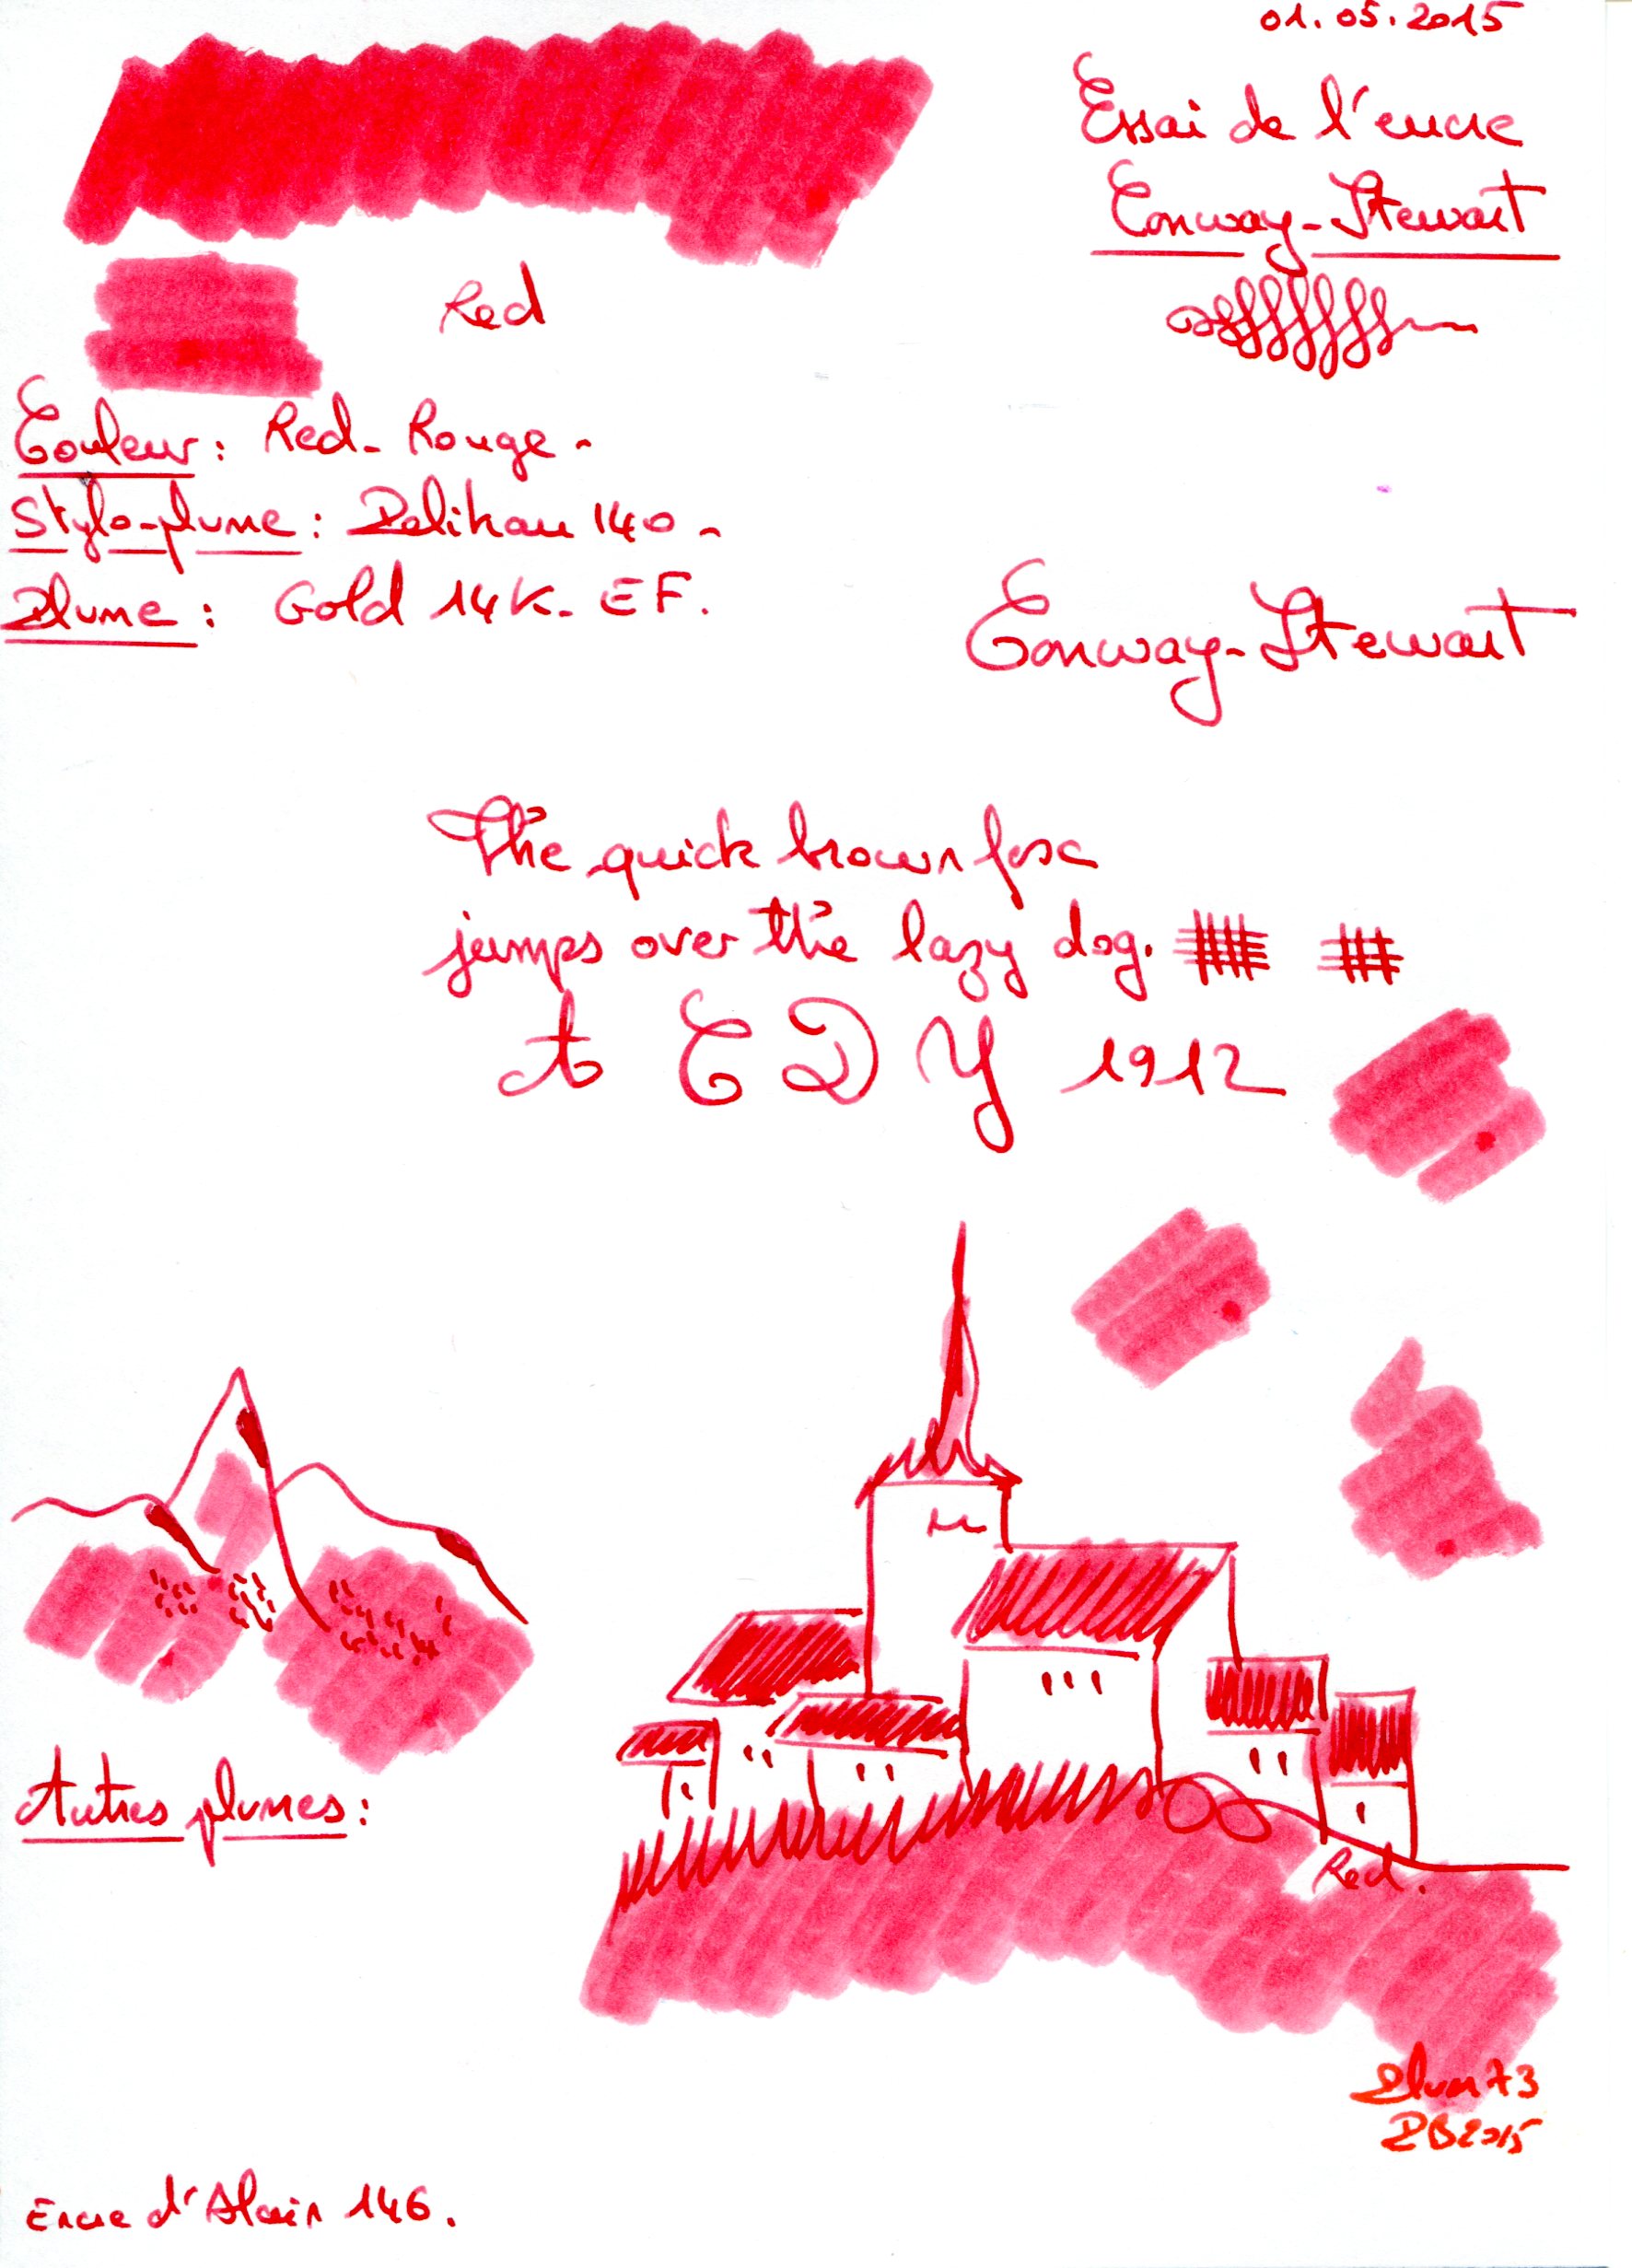 01.05.2015
Essai de l'encre
Conway-Stewart
Red
Couleur : Red - Rouge -
Stylo-plume : Pelikan 140 -
Plume : Gold 14K - EF.
Conway-Stewart
The quick brown fox
jumps over the lazy dog.
A C D Y 1912
Autres plumes :
Red.
Plum73
PB2015
Encre d'Alain 146.